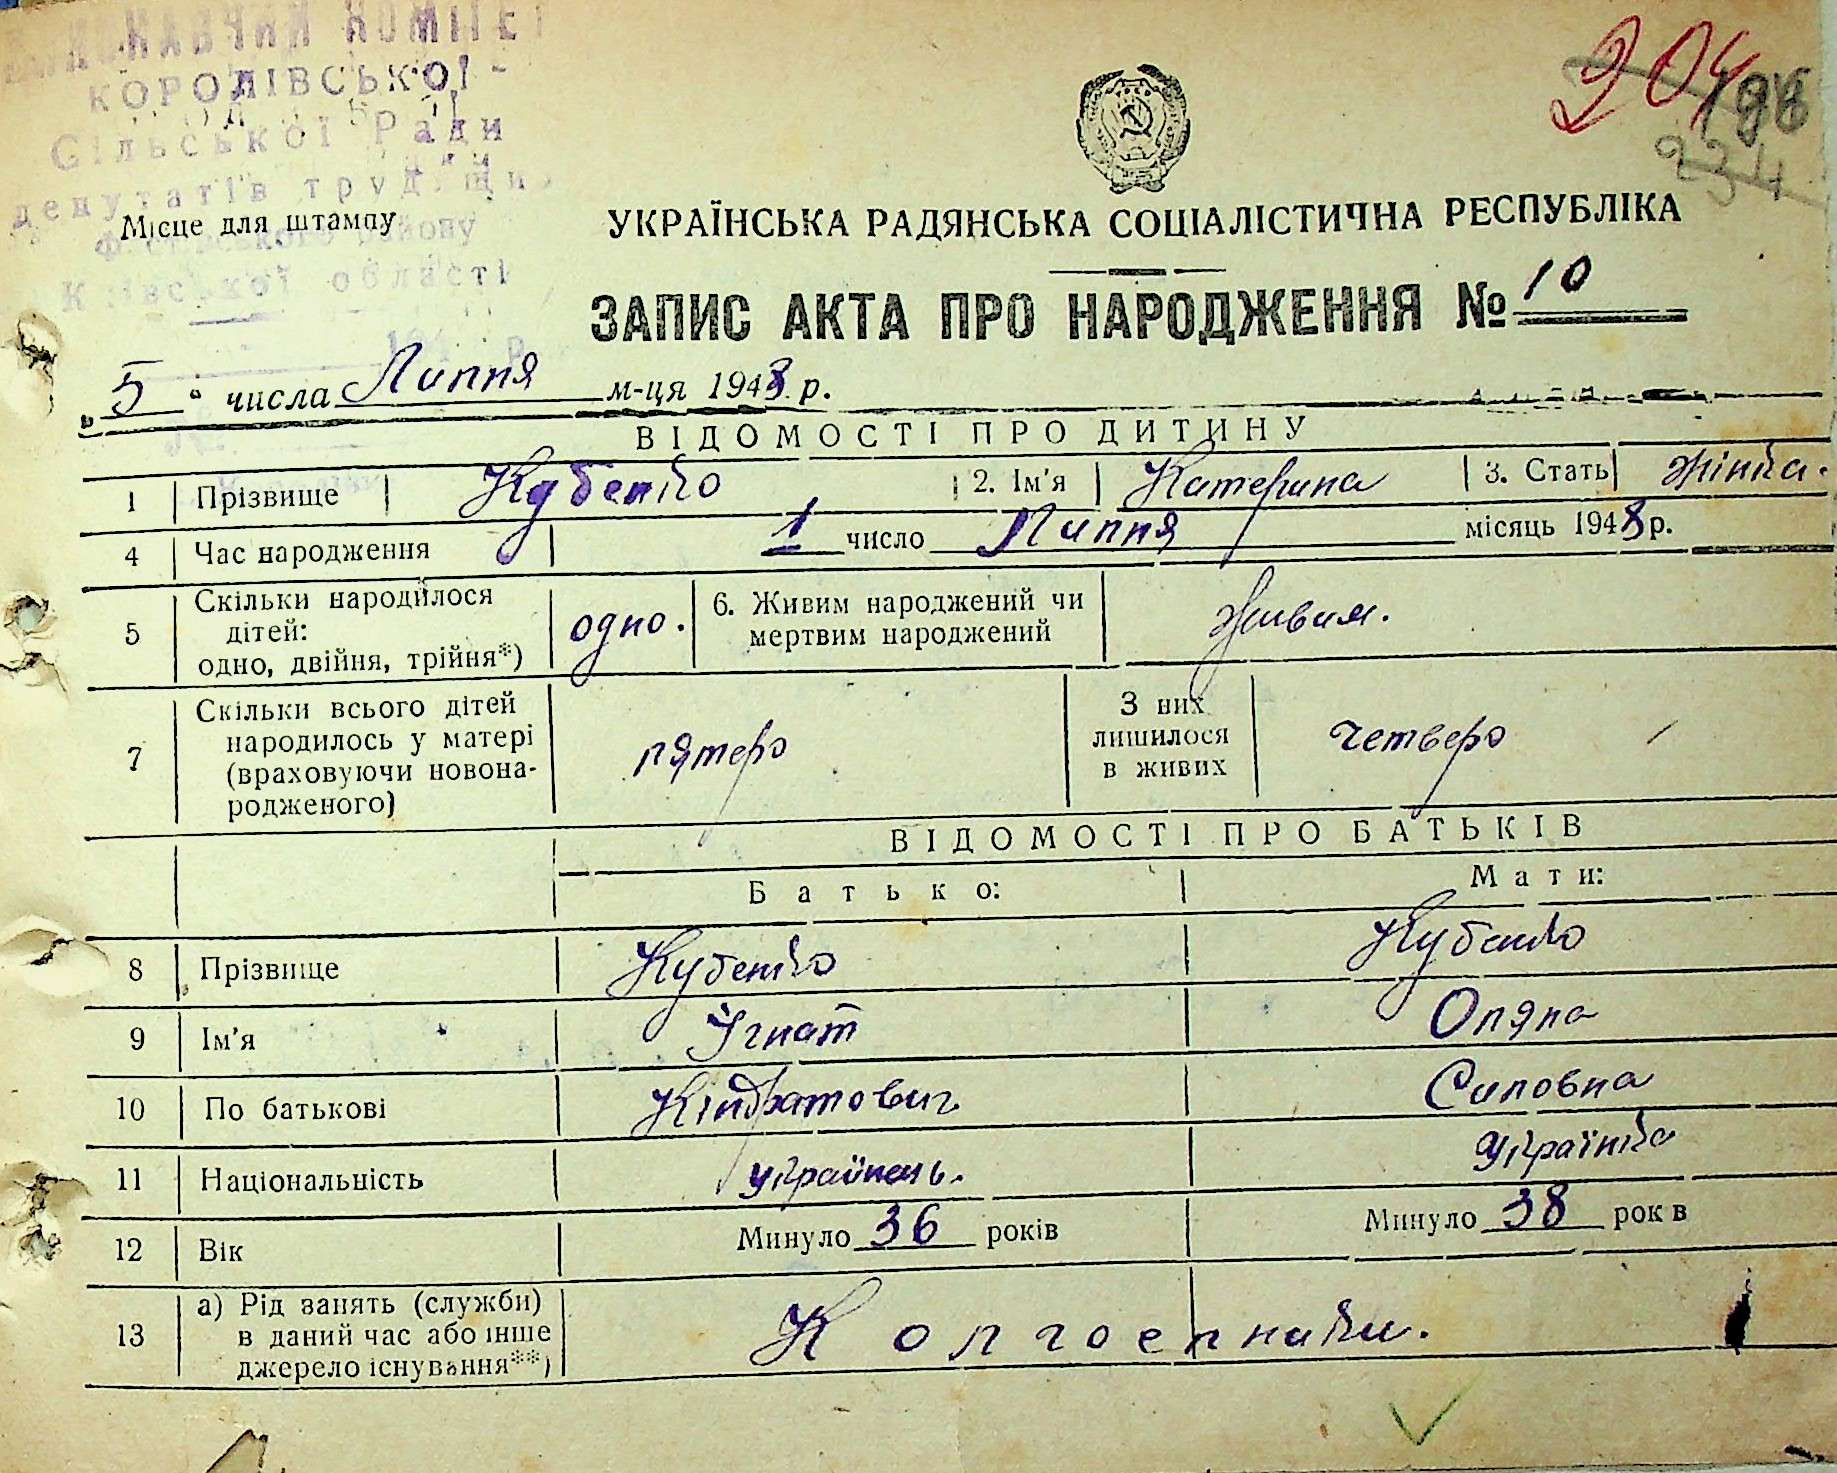 ВИКОНАВЧИЙ КОМІТЕТ
КОРОЛІВСЬКОЇ -
Сільської Ради
депутатів трудящих
Місце для штампу
району
Київської області
204
198
234
УКРАЇНСЬКА РАДЯНСЬКА СОЦІАЛІСТИЧНА РЕСПУБЛІКА
ЗАПИС АКТА ПРО НАРОДЖЕННЯ № 10
„5“ числа Липня м-ця 1948 р.
ВІДОМОСТІ ПРО ДИТИНУ
1 Прізвище Кубенко 2. Ім'я Катерина 3. Стать жінка.
4 Час народження 1 число Липня місяць 1948 р.
5 Скільки народилося дітей: одно, двійня, трійня*) одно. 6. Живим народжений чи мертвим народжений Живим.
7 Скільки всього дітей народилось у матері (враховуючи новона-родженого) пятеро З них лишилося в живих четверо
ВІДОМОСТІ ПРО БАТЬКІВ
Батько: Мати:
8 Прізвище Кубенко Кубенко
9 Ім'я Ігнат Оляна
10 По батькові Кіндратович Силовна
11 Національність українець. Українка
12 Вік Минуло 36 років Минуло 38 рок в
13 а) Рід занять (служби) в даний час або інше джерело існування**) Колгоспники.